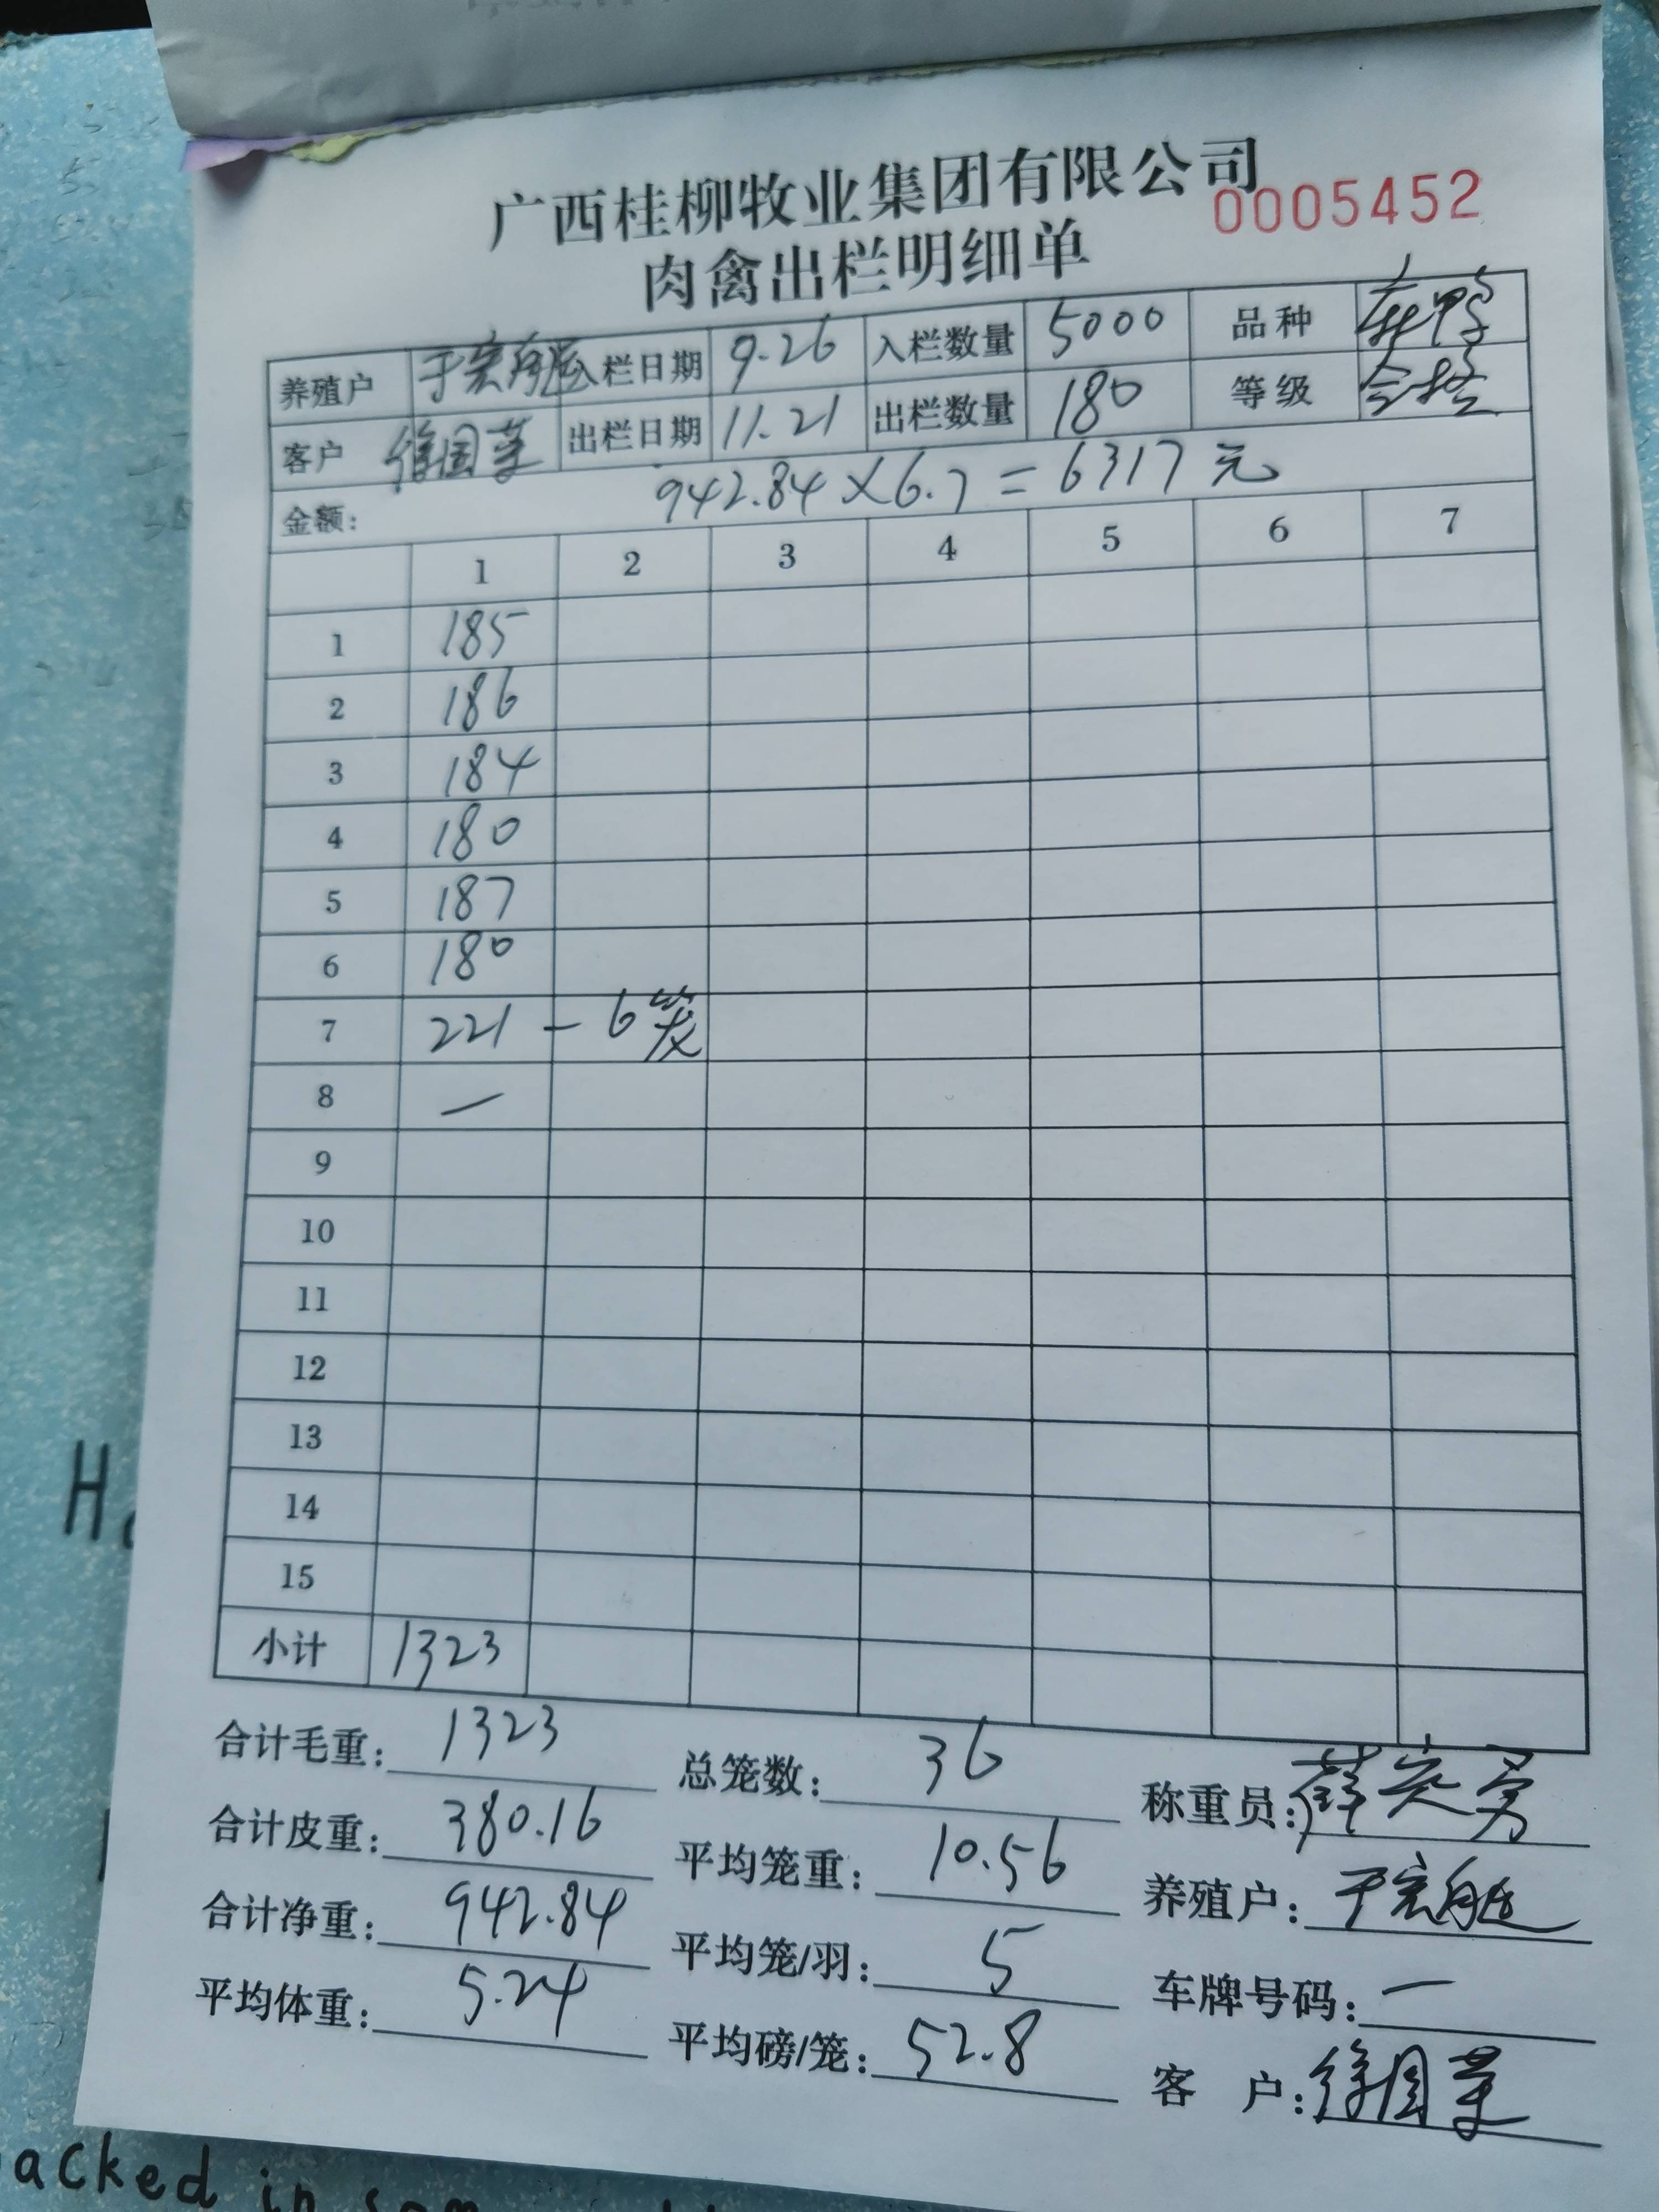 广西桂柳牧业集团有限公司
0005452
肉禽出栏明细单
养殖户 于宏 入栏日期 9.26 入栏数量 5000 品种 鸭
客户 徐国 出栏日期 11.21 出栏数量 180 等级 合格
金额: 942.84×6.7=6317元
1 2 3 4 5 6 7
1 185
2 186
3 184
4 180
5 187
6 180
7 221 – 6笼
8 —
9
10
11
12
13
14
15
小计 1323
合计毛重: 1323 总笼数: 36 称重员: 薛
合计皮重: 380.16 平均笼重: 10.56 养殖户: 于宏
合计净重: 942.84 平均笼/羽: 5 车牌号码: —
平均体重: 5.24 平均磅/笼: 52.8 客 户: 徐国
H
acked in som